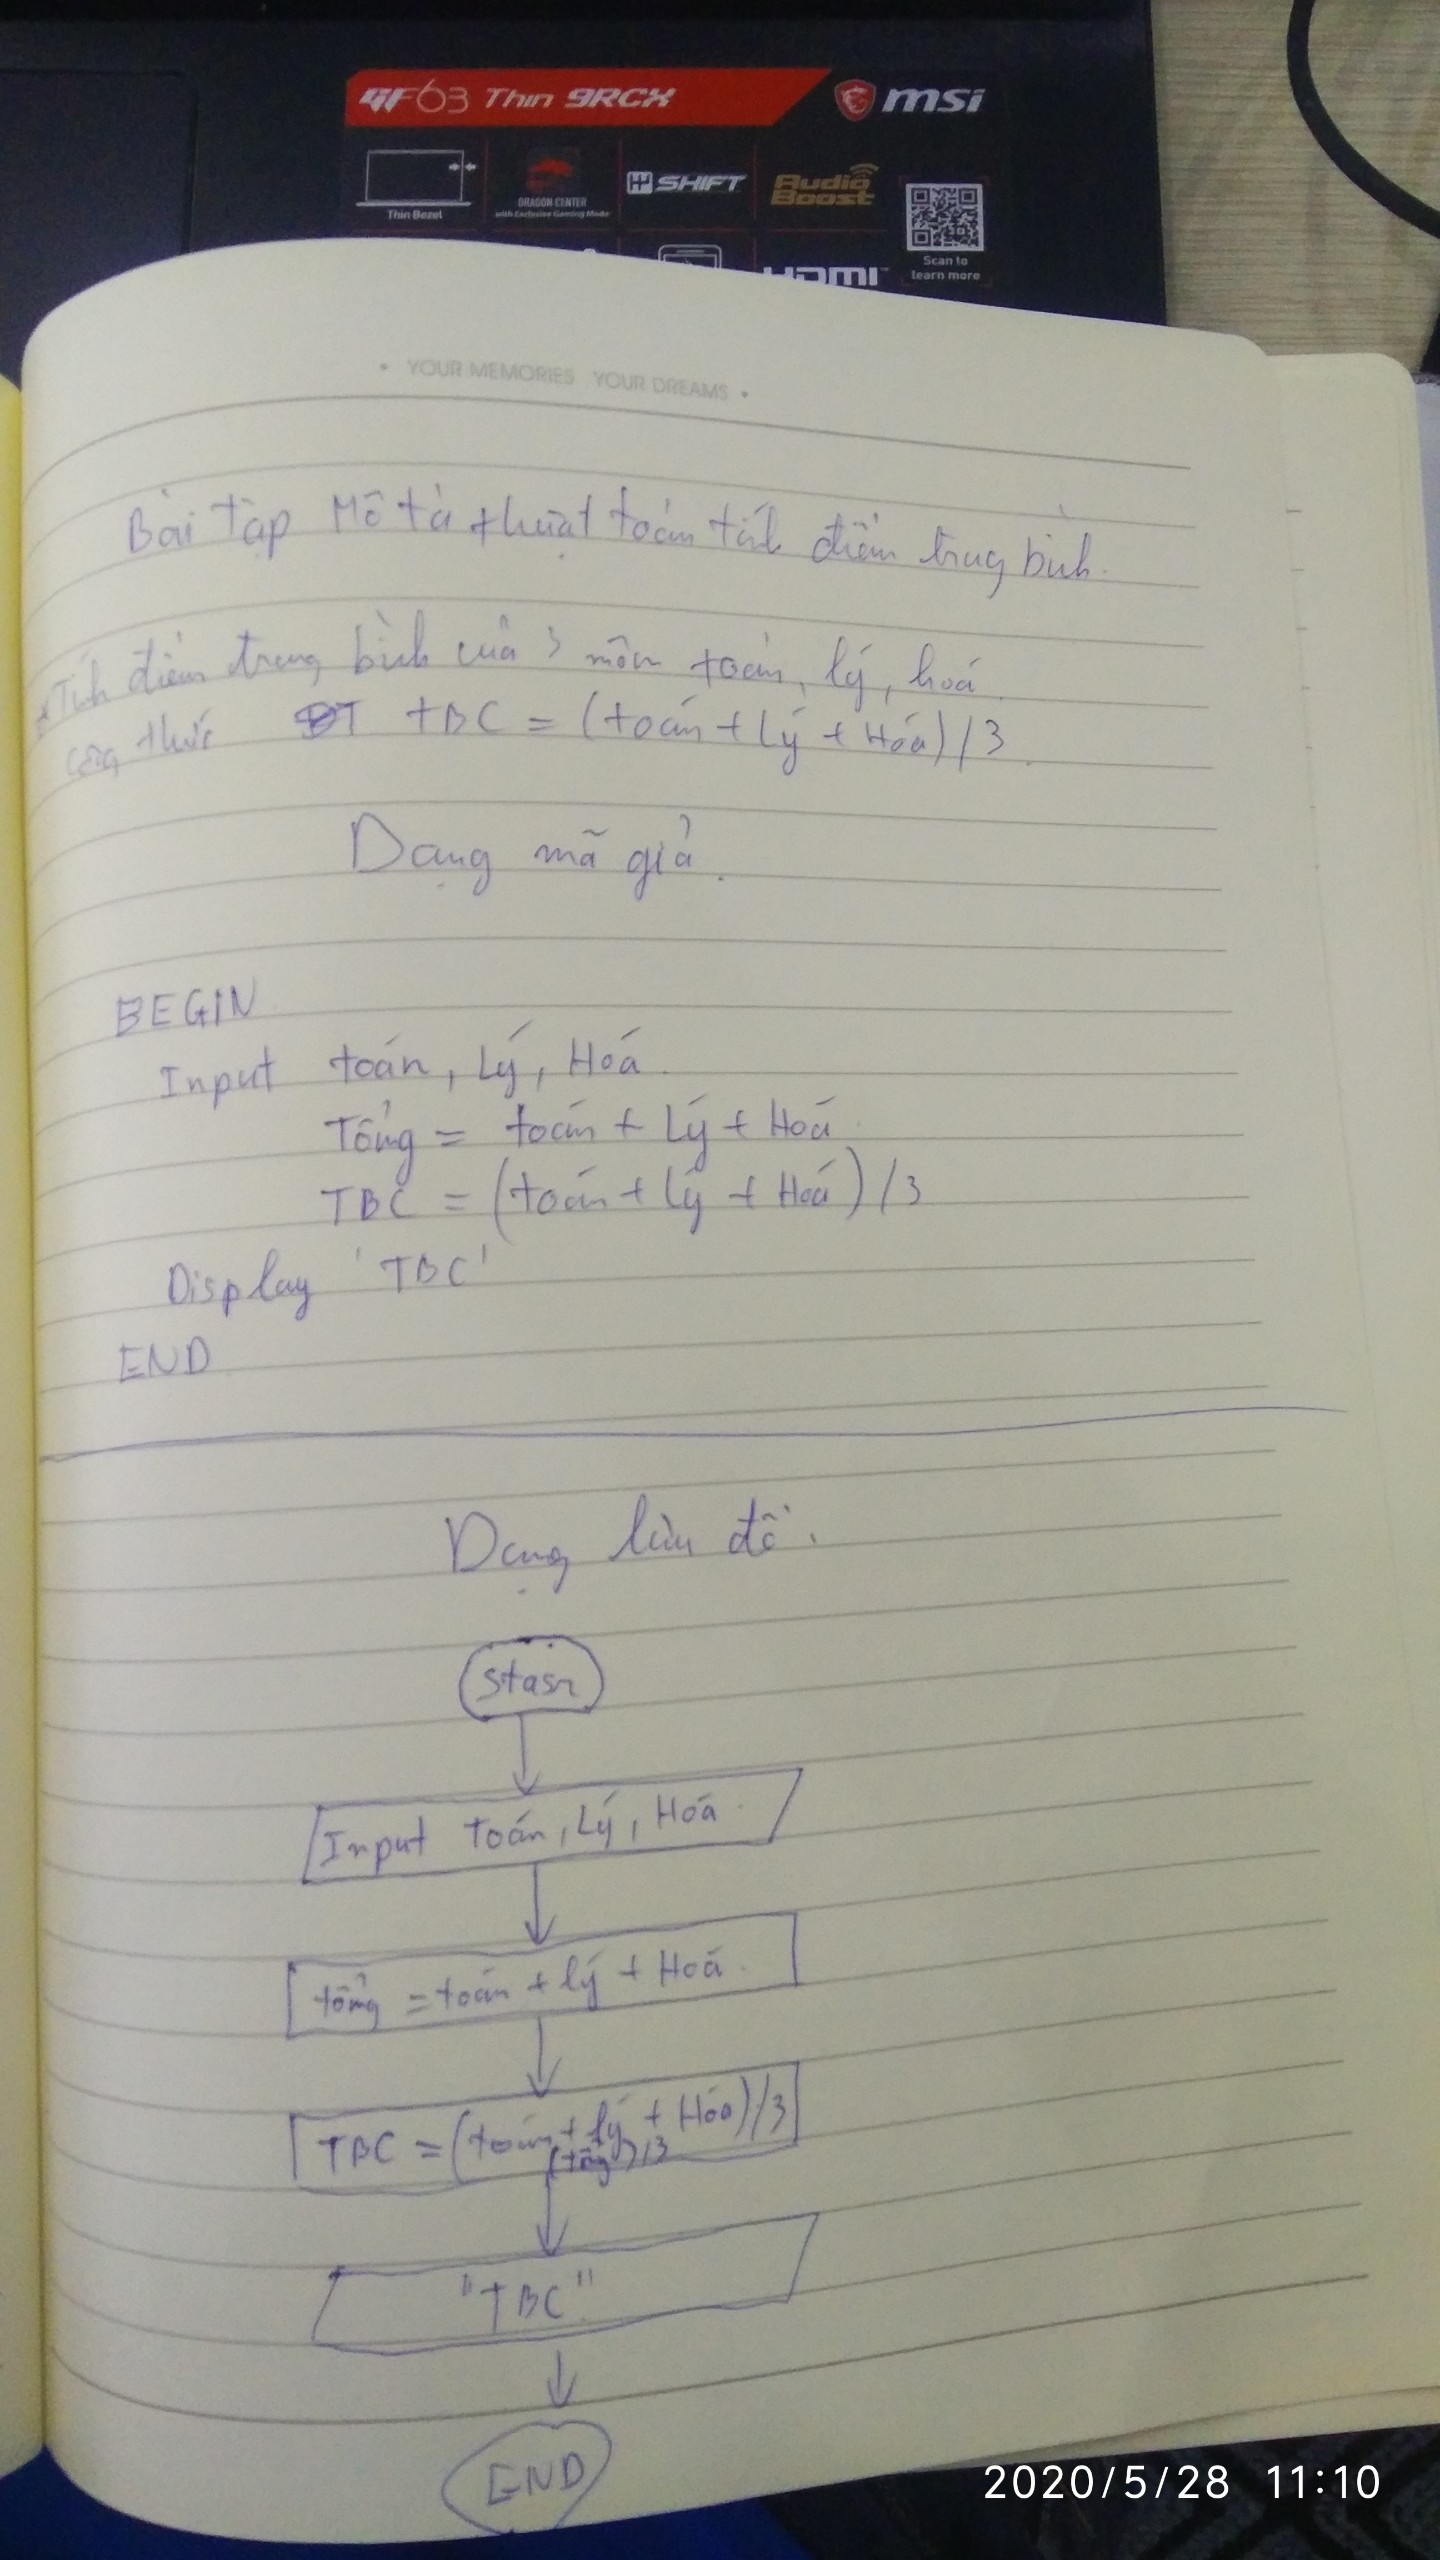 GF63 Thin 9RCX
msi
Thin Bezel
DRAGON CENTER
with Exclusive Gaming Mode
SHIFT
Audio Boost
Scan to
learn more
HDMI
• YOUR MEMORIES YOUR DREAMS •
Bài tập Mô tả thuật toán tính điểm trung bình.
* Tính điểm trung bình của 3 môn toán, lý, hoá.
công thức TBC = (toán + Lý + Hóa)/3.
Dạng mã giả.
BEGIN
Input toán, Lý, Hoá.
Tổng = toán + Lý + Hoá.
TBC = (toán + Lý + Hoá)/3
Display 'TBC'
END
Dạng lưu đồ.
Input Toán, Lý, Hoá.
tổng = toán + lý + Hoá.
TBC = (toán + lý + Hóa)/3
(tổng)/3
"TBC"
END
2020/5/28 11:10